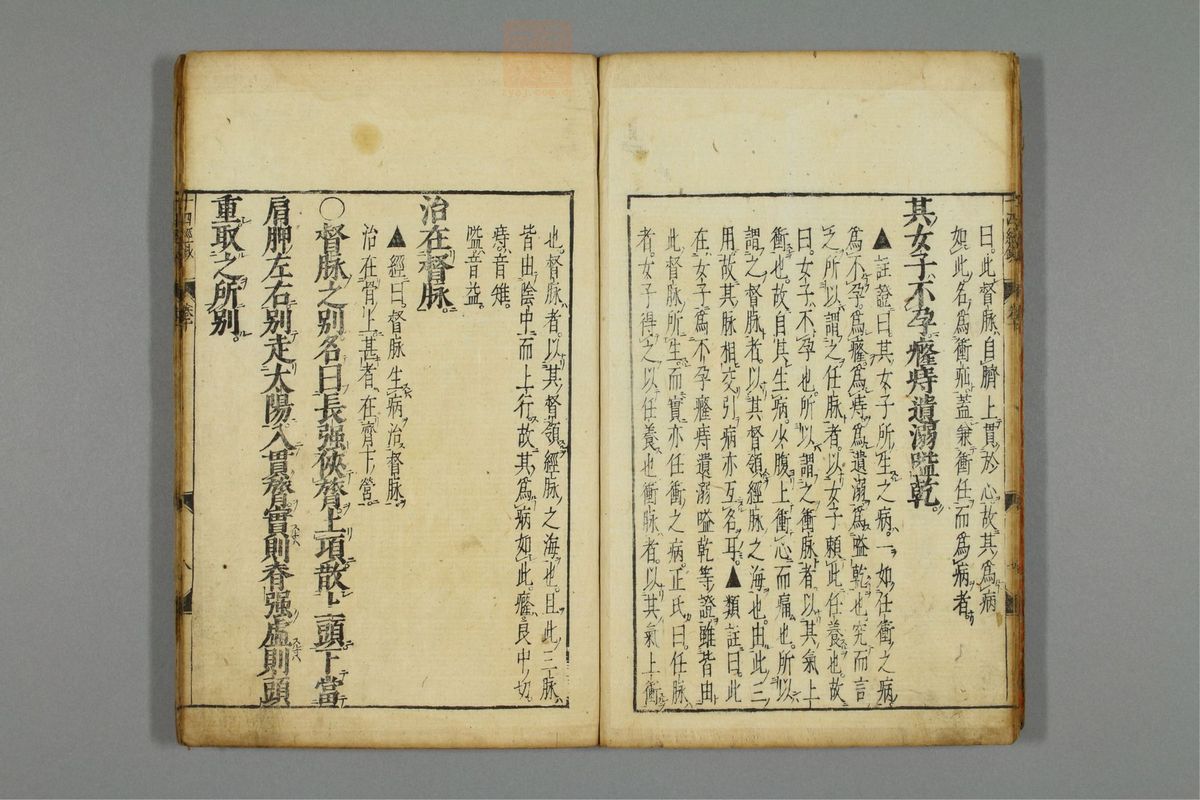 曰此督脉自臍上貫於心故其爲病
如此名爲衝疝蓋兼衝任而爲病者
其女子不孕癃痔遺溺嗌乾
▲註證曰其女子所生之病一如任衝之病
爲不孕爲癃爲痔爲遺溺爲嗌乾也究而言
之所以謂之任脉者以女子賴此任養也故
曰女子不孕也所以謂之衝脉者以其氣上
衝也故自其生病少腹上衝心而痛也所以
謂之督脉者以其督領經脉之海也由此三
用故其脉相交引病亦互名耳▲類註曰此
在女子爲不孕癃痔遺溺嗌乾等證雖皆由
此督脉所生而實亦任衝之病王氏曰任脉
者女子得之以任養也衝脉者以其氣上衝
也督脉者以其督領經脉之海也且此三脉
皆由陰中而上行故其爲病如此癃良中切
痔音雉
嗌音益
治在督脉
▲經曰督脉生病治督脉
治在骨上甚者在齊下營
○督脉之别名曰長强俠膂上項散上頭下當
肩胛左右别走太陽入貫膂實則脊强虛則頭
重取之所别